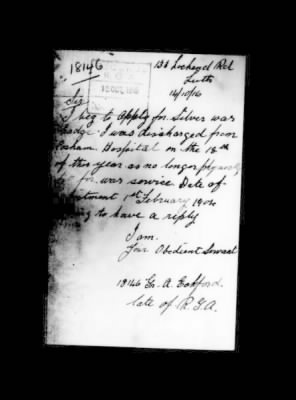 18146
133 Lochend Rd
Leith
14/10/16
Sir
I beg to apply for Silver war
badge. I was discharged from
Hospital on the 18th
of this year as no longer physically
for war service Date of
1st February 1904
to have a reply
I am.
Your Obedient Servant
18146 Gr. A.
late of R.G.A.